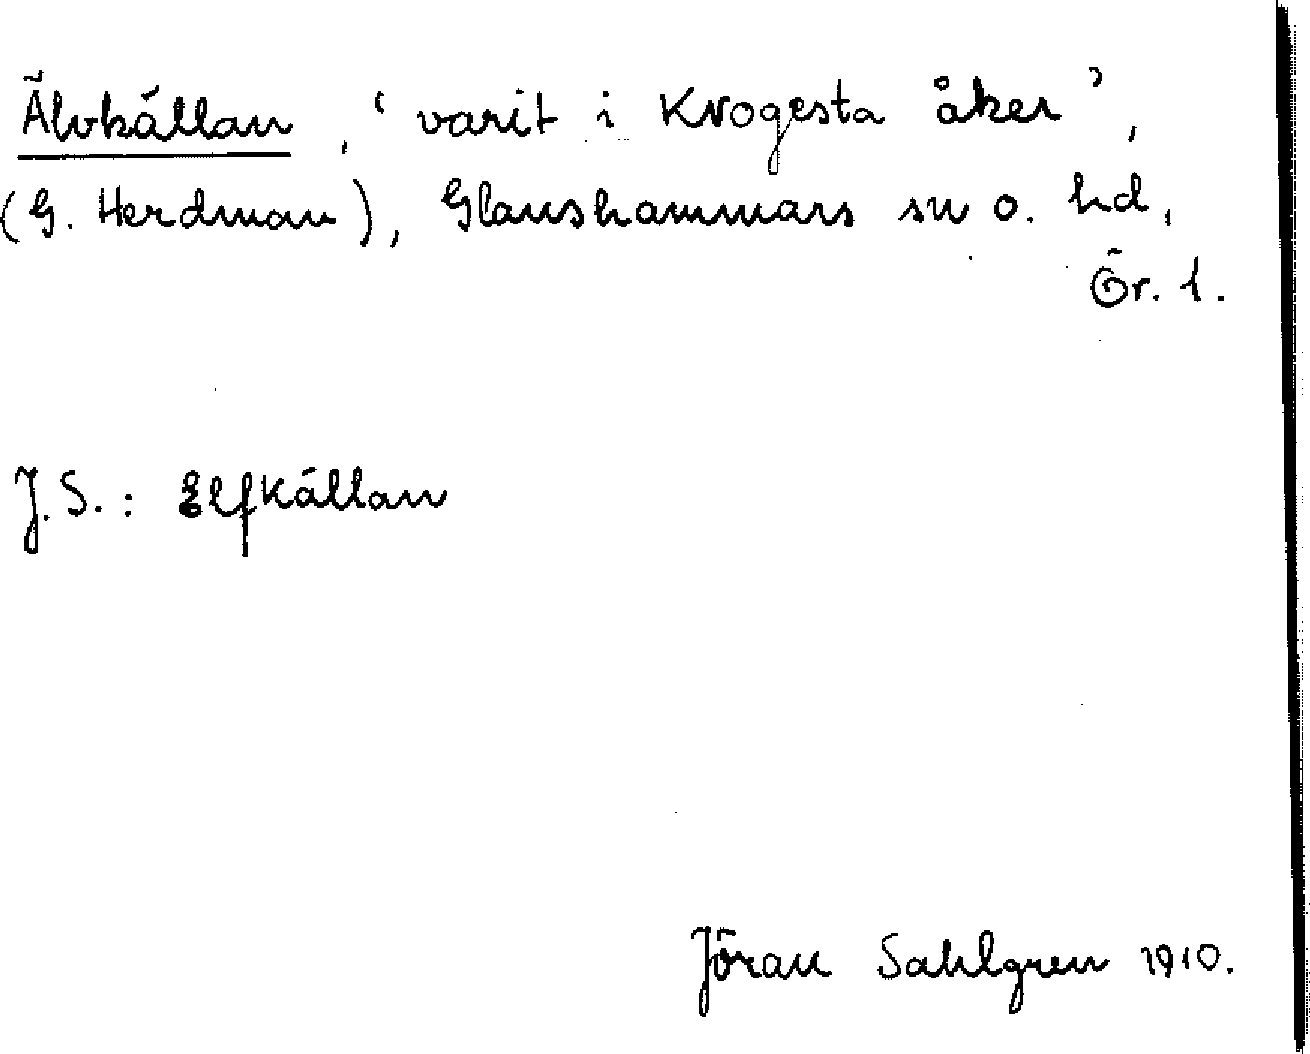 Älvkällan, ‘varit i Krogesta åker’,
(G. Herdman), Glanshammars sn o. hd,
Ör. l.
J.S.: Elfkällan
Jöran Sahlgren 1910.